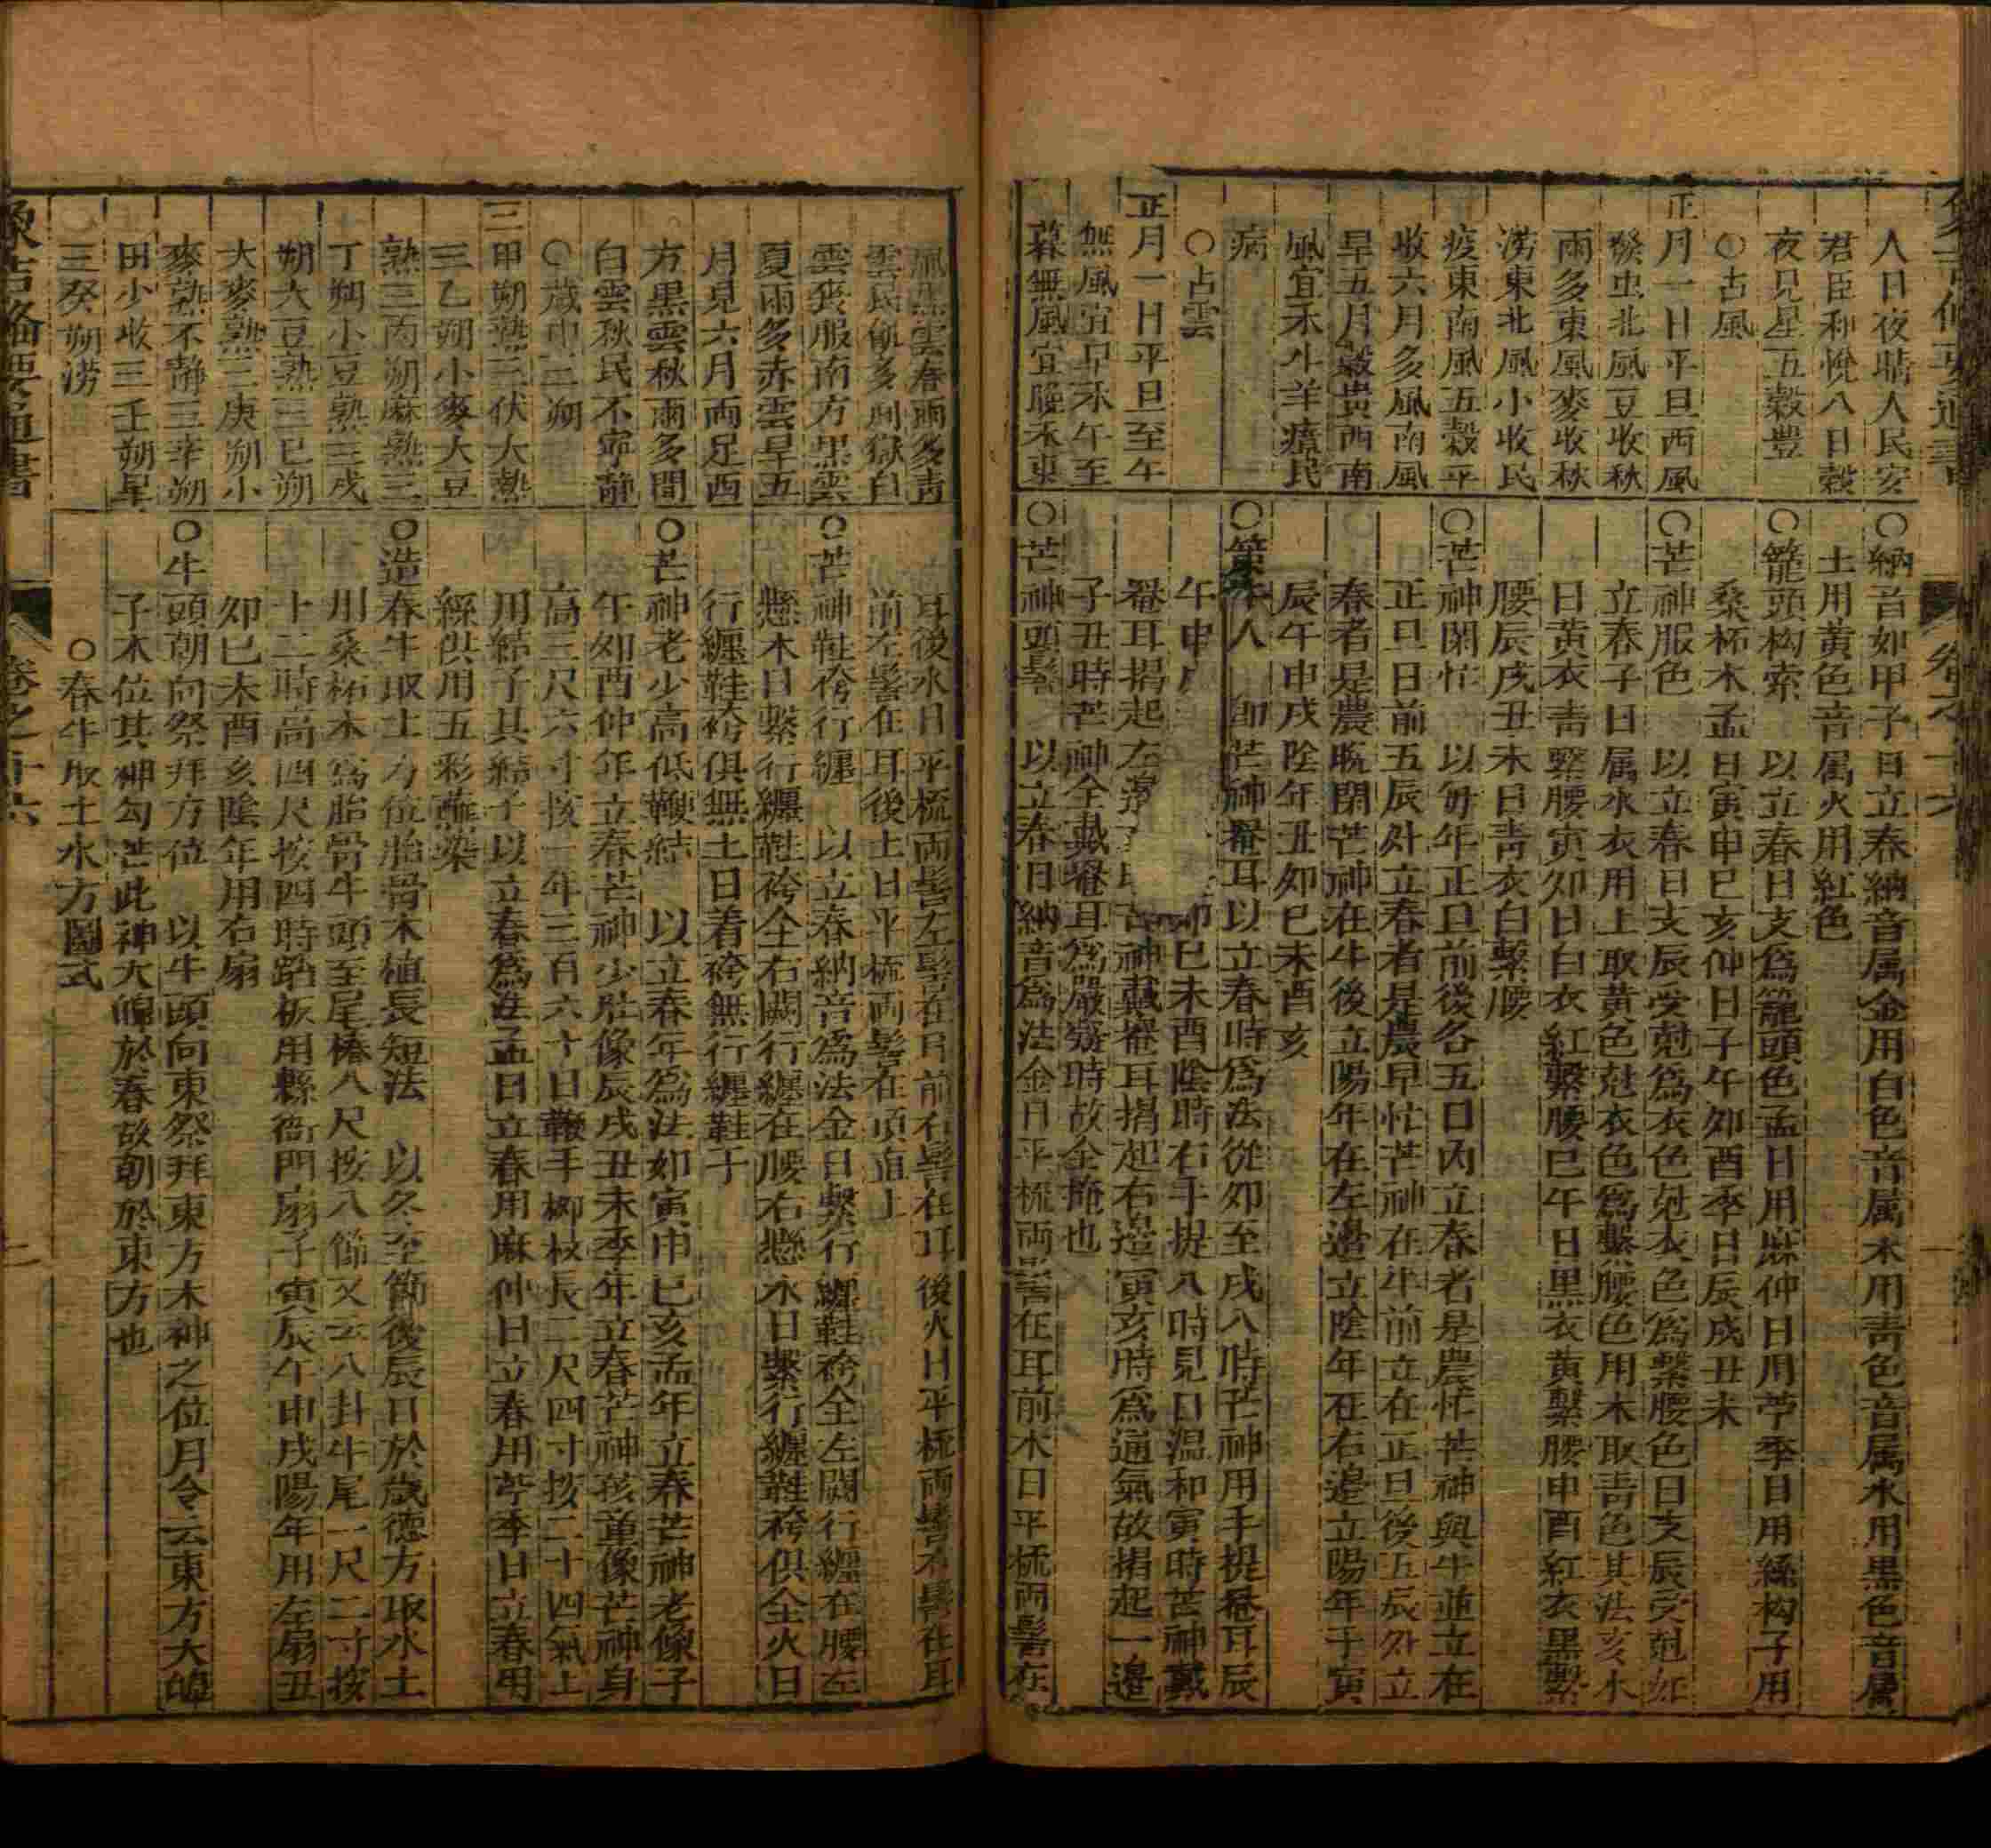 人日夜晴人民安
君臣和悅八日穀
夜見星五穀豐
○占風
正月一日平旦西風
發虫北風豆收秋
雨多東風麥收秋
澇東北風小收民
疫東南風五穀平
收六月多風南風
旱五月穀貴西南
風宜禾牛羊瘴民
病
○占雲
正月一日平旦至午
無風宜早禾午至
暮無風宜晚禾東
○納音如甲子日立春納音属金用白色音属木用青色音属水用黑色音屬
土用黄色音属火用紅色
○籠頭构索 以立春日支爲籠頭色孟日用麻仲日用苧季日用絲构子用
桑柘木孟日寅申巳亥仲日子午夘酉季日辰戌丑未
○芒神服色 以立春日支辰受尅爲衣色尅衣色爲繫腰色日支辰受尅如
立春子日属水衣用土取黄色尅衣色爲繫腰色用木取青色其法亥水
日黄衣青繫腰寅夘日白衣紅繫腰巳午日黒衣黄繫腰申酉紅衣黒繫
腰辰戌丑未日青衣白繫腰
○芒神閑忙 以每年正旦前後各五日内立春者是農忙芒神與牛並立在
正旦日前五辰外立春者是農早忙芒神在牛前立在正旦後五辰外立
春者是農晩閑芒神在牛後立陽年在左邉立陰年在右邉立陽年子寅
辰午申戌陰年丑夘巳未酉亥
○策牛人 即芒神罨耳以立春時爲法從夘至戌八時芒神用手提罨耳辰
午申 夘巳未酉陰時右手提八時見日温和寅時芒神戴
罨耳揭起左邉 芒神戴罨耳揭起右邉寅亥時爲通氣故揭起一邉
子丑時芒神全戴罨耳爲嚴寒時故全掩也
○芒神頭髻 以立春日納音爲法金日平梳両髻在耳前木日平梳両髻在
風黒雲春雨多青
雲民飢多刑獄白
雲喪服南方黒雲
夏雨多赤雲旱五
月見六月雨足西
方黒雲秋雨多間
白雲秋民不寧静
○歲中三朔
三甲朔熱三伏大熱
三乙朔小麥大豆
熟三丙朔麻熟三
丁朔小豆熟三戊
朔大豆熟三巳朔
大麥熟三庚朔小
麥熟不静三辛朔
田少收三壬朔旱
三癸朔澇
耳後水日平梳両髻左髻在耳前右髻在耳後火日平梳両髻右髻在耳
前左髻在耳後土日平梳両髻在頂直上
○芒神鞋袴行纒 以立春納音爲法金日繫行纒鞋袴全左闘行纒在腰左
懸木日繫行纒鞋袴全右闘行纒在腰右懸水日繫行纒鞋袴俱全火日
行纒鞋袴俱無土日着袴無行纒鞋子
○芒神老少高低鞭結 以立春年爲法如寅申巳亥孟年立春芒神老像子
午夘酉仲年立春芒神少壯像辰戌丑未季年立春芒神孩童像芒神身
高三尺六寸按一年三百六十日鞭手柳枝長二尺四寸按二十四氣上
用結子其結子以立春爲法孟日立春用麻仲日立春用苧季日立春用
絲俱用五彩蘸染
○造春牛取土方位胎骨木植長短法 以冬至節後辰日於歲德方取水土
用桑柘木爲胎骨牛頭至尾樁八尺按八節又云八卦牛尾一尺二寸按
十二時高四尺按四時踏板用縣衙門扇子寅辰午申戌陽年用左扇丑
夘巳未酉亥陰年用右扇
○牛頭朝向祭拜方位 以牛頭向東祭拜東方木神之位月令云東方大皥
子木位其神勾芒此神大皥於春故朝於東方也
○春牛取土水方圖式
象吉備要通書
卷之十六